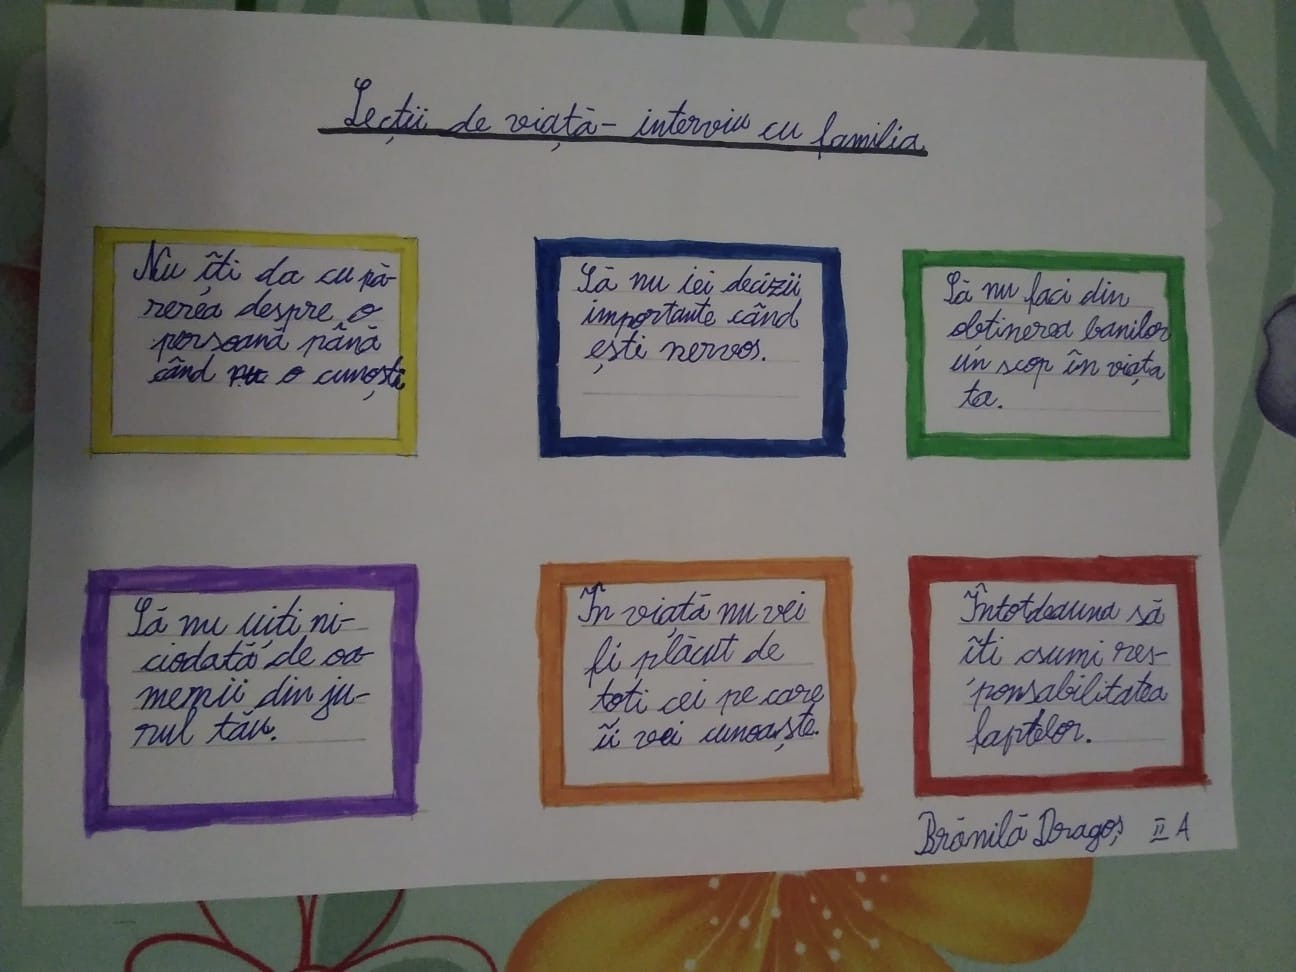 Lecții de viață - interviu cu familia
Nu îți da cu pă-
rerea despre o
persoană până
când nu o cunoști
Să nu iei decizii
importante când
ești nervos.
Să nu faci din
obtinerea banilor
un scop în viața
ta.
Să nu uiti ni-
ciodată de oa-
menii din ju-
rul tău.
În viață nu vei
fi plăcut de
toti cei pe care
îi vei cunoaște.
Întotdeauna să
îti asumi res-
ponsabilitatea
faptelor.
Brănilă Dragoș II A